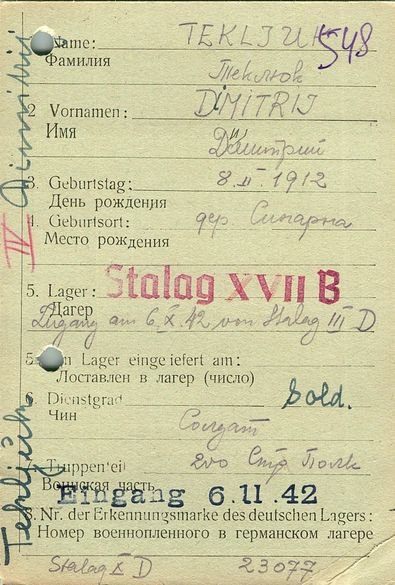 Name: TEKLJUK 548
Фамилия Теклюк
2 Vornamen: DIMITRIJ
Имя Дмитрий
3. Geburtstag: 8.II.1912
День рождения
4. Geburtsort: дер. Синарна
Место рождения
5. Lager: Stalag XVII B
Лагер
Zugang am 6.X.42 von Stalag III D
5 Lager eingeliefert am:
Доставлен в лагер (число)
6. Dienstgrad Sold.
Чин Солдат
7. Truppenteil 200 Стр. Полк
Воинская часть
Eingang 6.11.42
8. Nr. der Erkennungsmarke des deutschen Lagers:
Номер военнопленного в германском лагере
Stalag X D 23077
IV Dimitrij
Tekljuk